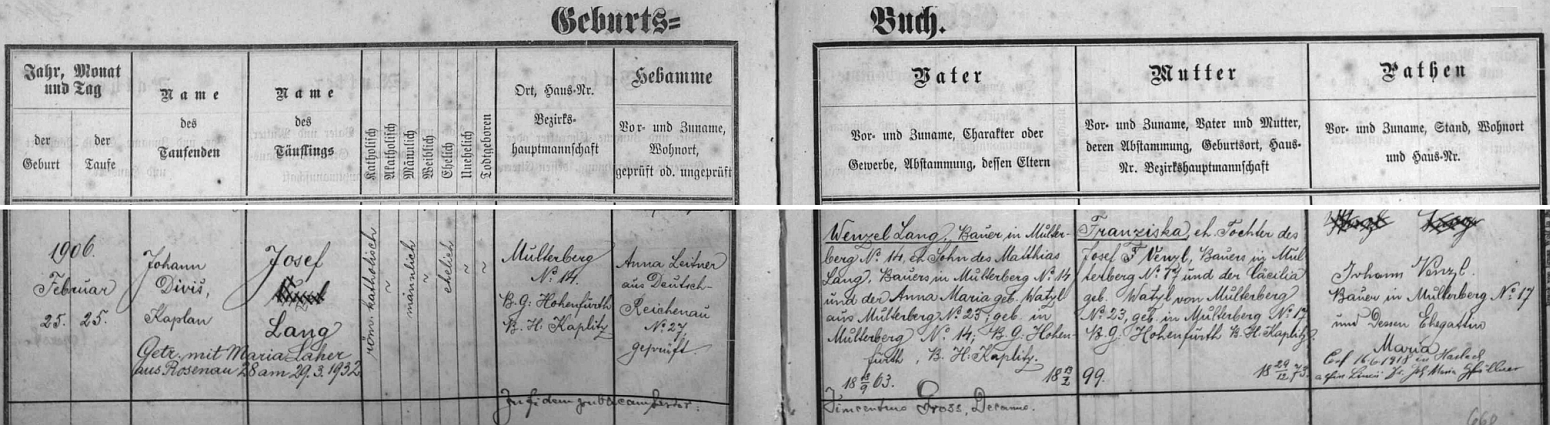 Geburts=
Buch.
Jahr, Monat
und Tag
der
Geburt
der
Taufe
Name
des
Taufenden
Name
des
Täuflings
Katholisch
Akatholisch
Männlich
Weiblich
Ehelich
Unehelich
Todtgeboren
Ort, Haus-Nr.
Bezirks-
hauptmannschaft
Hebamme
Vor- und Zuname,
Wohnort,
geprüft od. ungeprüft
Vater
Vor- und Zuname, Charakter oder
Gewerbe, Abstammung, dessen Eltern
Mutter
Vor- und Zuname, Vater und Mutter,
deren Abstammung, Geburtsort, Haus-
Nr. Bezirkshauptmannschaft
Pathen
Vor- und Zuname, Stand, Wohnort
und Haus-Nr.
1906
Februar
25. 25.
Johann
Diviš,
Kaplan
Josef
Lang
Getr. mit Maria Laher
aus Rosenau 28 am 29.3.1932
röm. katholisch
männlich
ehelich
Multerberg
No 14.
B.G. Hohenfurth
B.H. Kaplitz
Anna Leitner
aus Deutsch-
Reichenau
No 27
geprüft
Wenzel Lang, Bauer in Multer-
berg No 14, eh. Sohn des Matthias
Lang, Bauers in Multerberg No 14
und der Anna Maria geb. Watzl
aus Multerberg No 23; geb. in
Multerberg No 14; B.G. Hohen-
furth, B.H. Kaplitz.
18 63.
18 99.
Franziska, eh. Tochter des
Josef Venzl, Bauers in Mul-
terberg No 17 und der Cäcilia
geb. Watzl von Multerberg
No 23, geb. in Multerberg No 17
B.G. Hohenfurth B.H. Kaplitz.
18 29/12 73.
Johann Venzl.
Bauer in Multerberg No 17
und dessen Ehegattin
Maria
Conf. 16.6.1918 in Haslach
Vincentius Gross, Decanus.
668